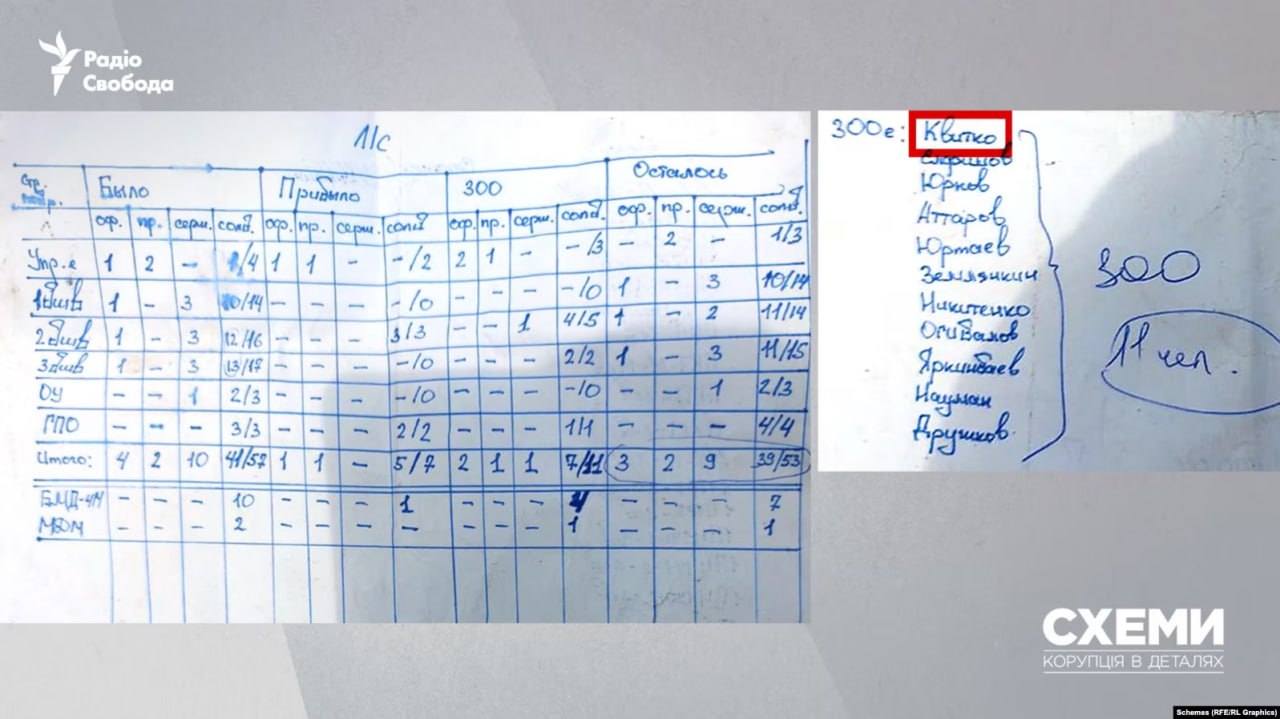 Радіо
Свобода
Л/с
Стр. подр. Было Прибыло 300 Осталось
оф. пр. серж. солд. оф. пр. серж. солд оф. пр. серж. солд. оф. пр. серж. солд.
Упр-е 1 2 - 1/4 1 1 - -/2 2 1 - -/3 - 2 - 1/3
1бшв 1 - 3 10/14 - - - -/0 - - - -/0 1 - 3 10/14
2бшв 1 - 3 12/16 - - - 3/3 - - 1 4/5 1 - 2 11/14
3бшв 1 - 3 13/17 - - - -/0 - - - 2/2 1 - 3 11/15
ОУ - - 1 2/3 - - - -/0 - - - -/0 - - 1 2/3
ГПО - - - 3/3 - - - 2/2 - - - 1/1 - - - 4/4
Итого: 4 2 10 41/57 1 1 - 5/7 2 1 1 7/11 3 2 9 39/53
БМД-4М - - - 10 - - - 1 - - - 4 - - - 7
МДМ - - - 2 - - - - - - - 1 - - - 1
300е: Квитко
Юрков
Аттаров
Юртаев
Землянкин
Никитенко
Огивалов
Яркинбаев
Науман
Друшков
300
11 чел.
СХЕМИ
КОРУПЦІЯ В ДЕТАЛЯХ
Schemes (RFE/RL Graphics)